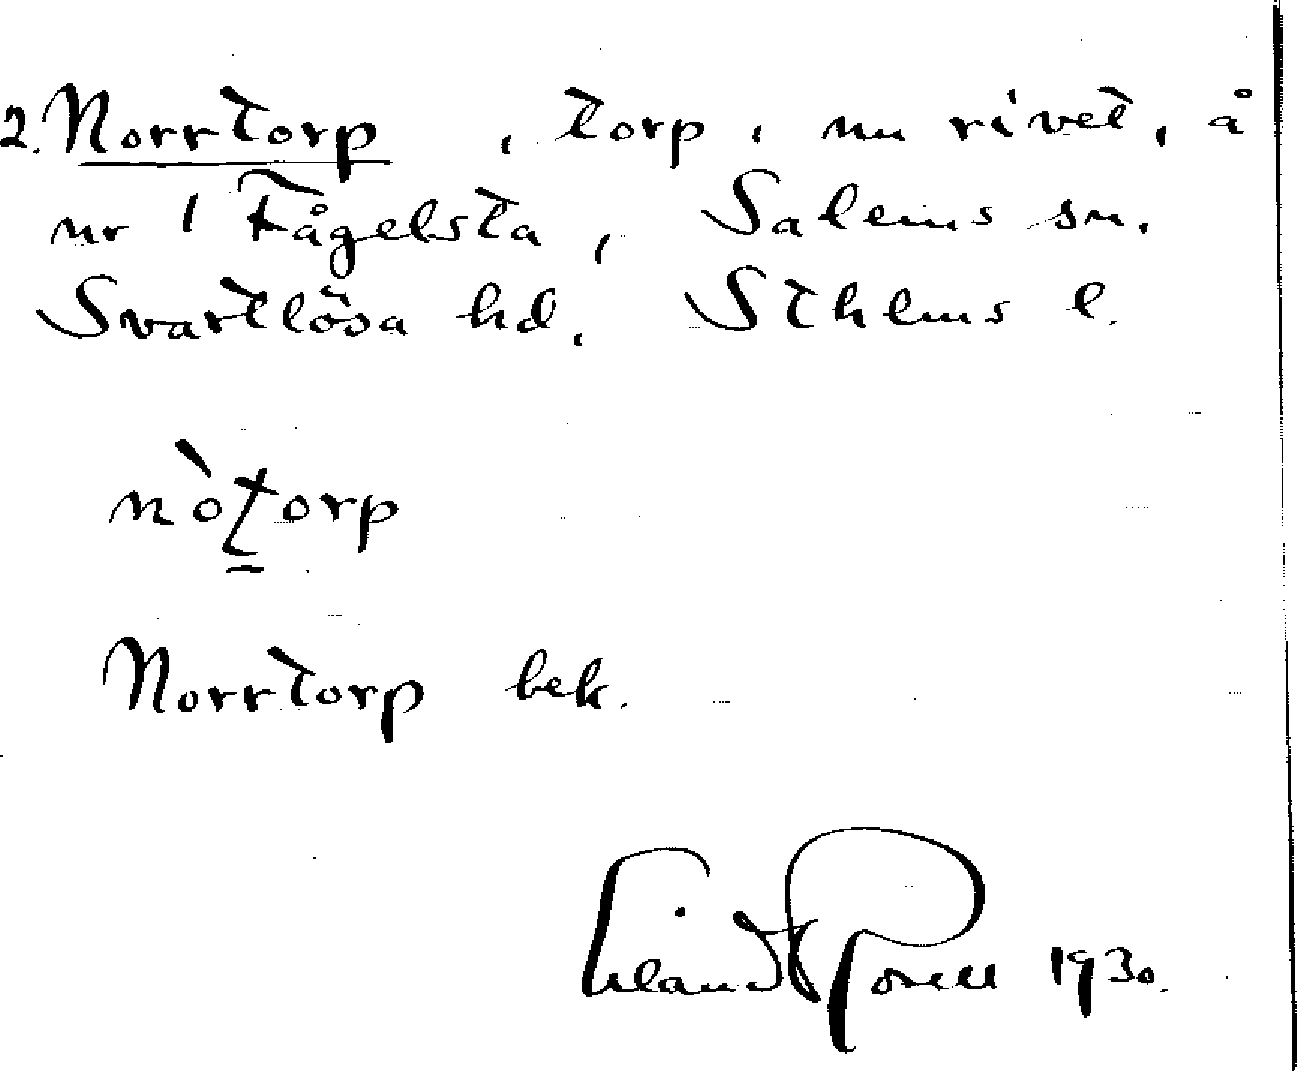 2. Norrtorp, torp, nu rivet, å
nr 1 Fågelsta, Salems sn.
Svartlösa hd. Sthlms l.
nòt̲orp
Norrtorp bek.
1930.